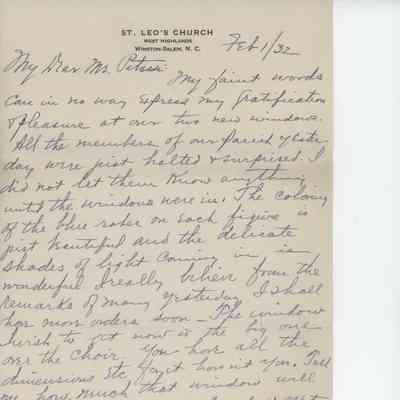 ST. LEO'S CHURCH
WEST HIGHLANDS
WINSTON-SALEM, N. C.
Feb 1/32
My Dear Mr. Pitseir:
My faint words
can in no way express my gratification
& pleasure at our two new windows.
All the members of our Parish yester
day were just halted & surprised. I
did not let them know anything
until the windows were in. The coloring
of the blue robes on each figure is
just beautiful and the delicate
shades of light coming in is
wonderful I really believe from the
remarks of many yesterday I shall
have more orders soon — The window
I wish to get now is the big one
over the Choir. You have all the
dimensions etc yet haven't you. Tell
me how much that window will